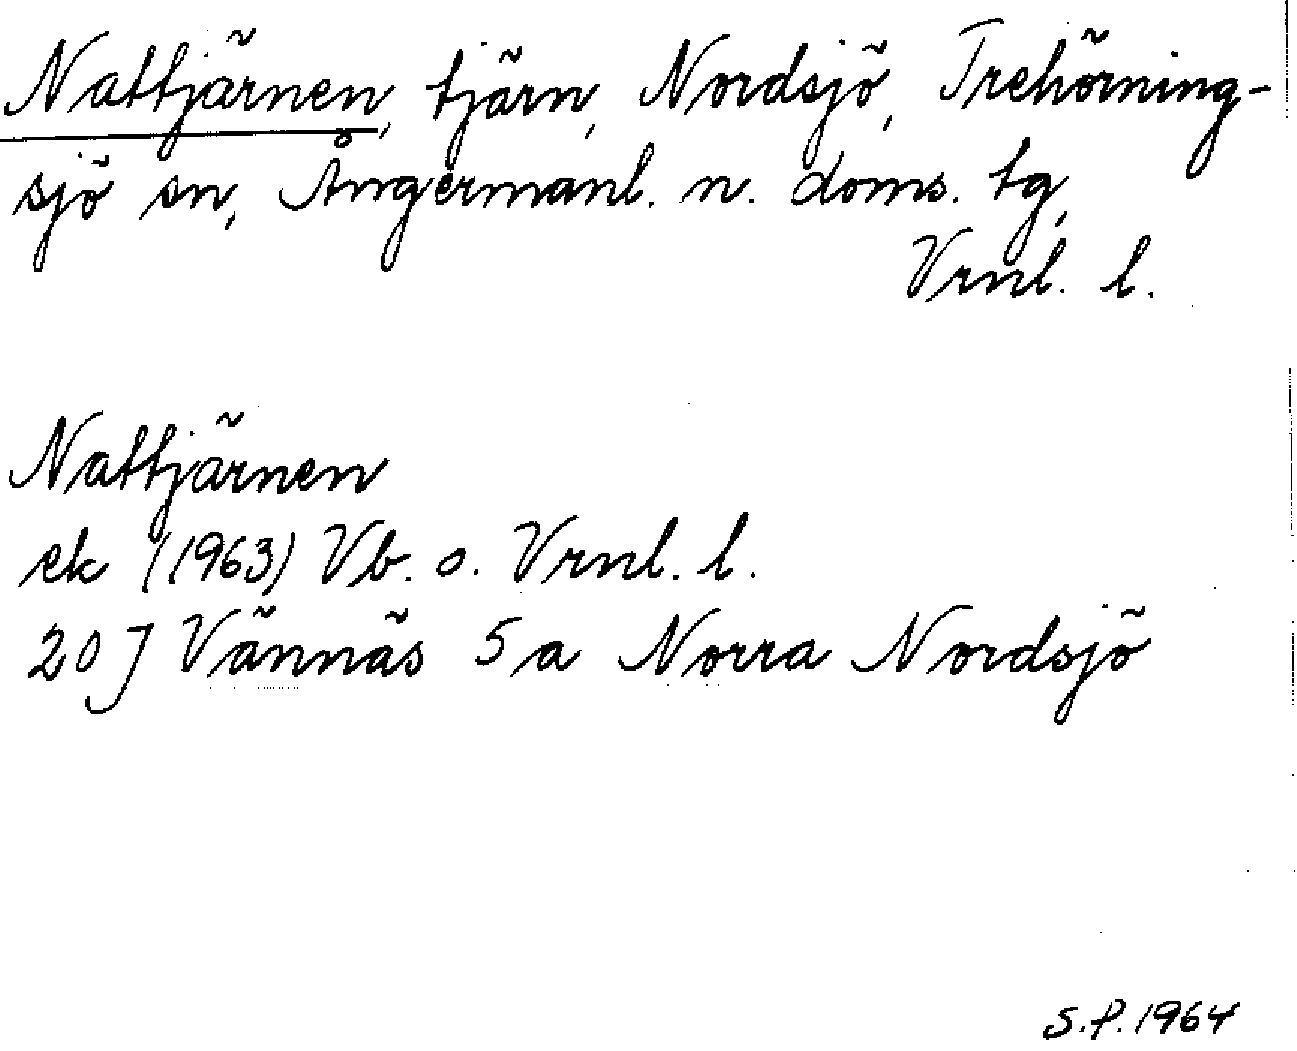 Nattjärnen, tjärn, Nordsjö, Trehörning-
sjö sn, Ångermanl. n. doms. tg,
Vrnl. l.
Nattjärnen
ek (1963) Vb. o. Vrnl. l.
20 J Vännäs 5 a Norra Nordsjö
S.P. 1964